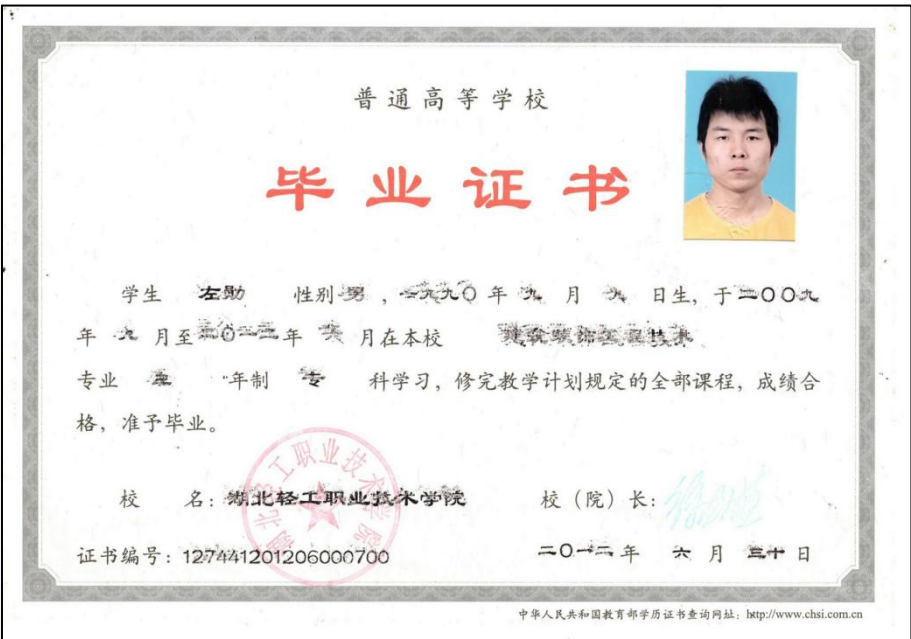 普通高等学校
毕业证书
学生 左勋 性别 男 , 一九九〇 年 九 月 九 日生, 于 二〇〇九
年 九 月至 二〇一二 年 六 月在本校 建筑装饰工程技术
专业 三 年制 专 科学习, 修完教学计划规定的全部课程, 成绩合
格, 准予毕业。
校 名: 湖北轻工职业技术学院 校 (院) 长:
证书编号: 127441201206000700 二〇一二 年 六 月 三十 日
湖北轻工职业技术学院
中华人民共和国教育部学历证书查询网址: http://www.chsi.com.cn